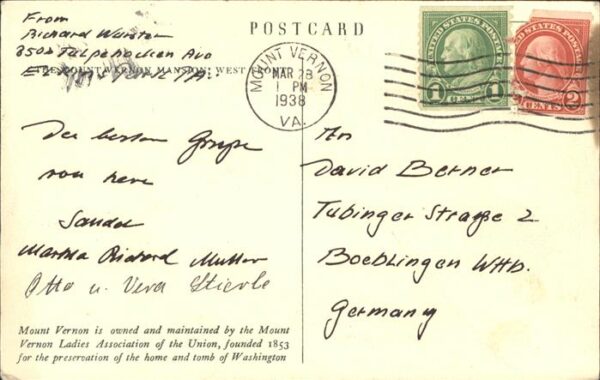 From
Richard Wurster
3502 Tulpehocken Ave
POSTCARD
THE MOUNT VERNON MANSION: WEST FRONT
MOUNT VERNON
MAR 28
1 PM
1938
VA.
UNITED STATES POSTAGE
1 CENT 1
UNITED STATES POSTAGE
CENTS 2
Die besten Grüße
von here
sendet
Martha Richard Mutter
Otto u. Vera Stierle
An
David Berner
Tubinger Straße 2
Boeblingen Wttb.
Germany
Mount Vernon is owned and maintained by the Mount
Vernon Ladies Association of the Union, founded 1853
for the preservation of the home and tomb of Washington